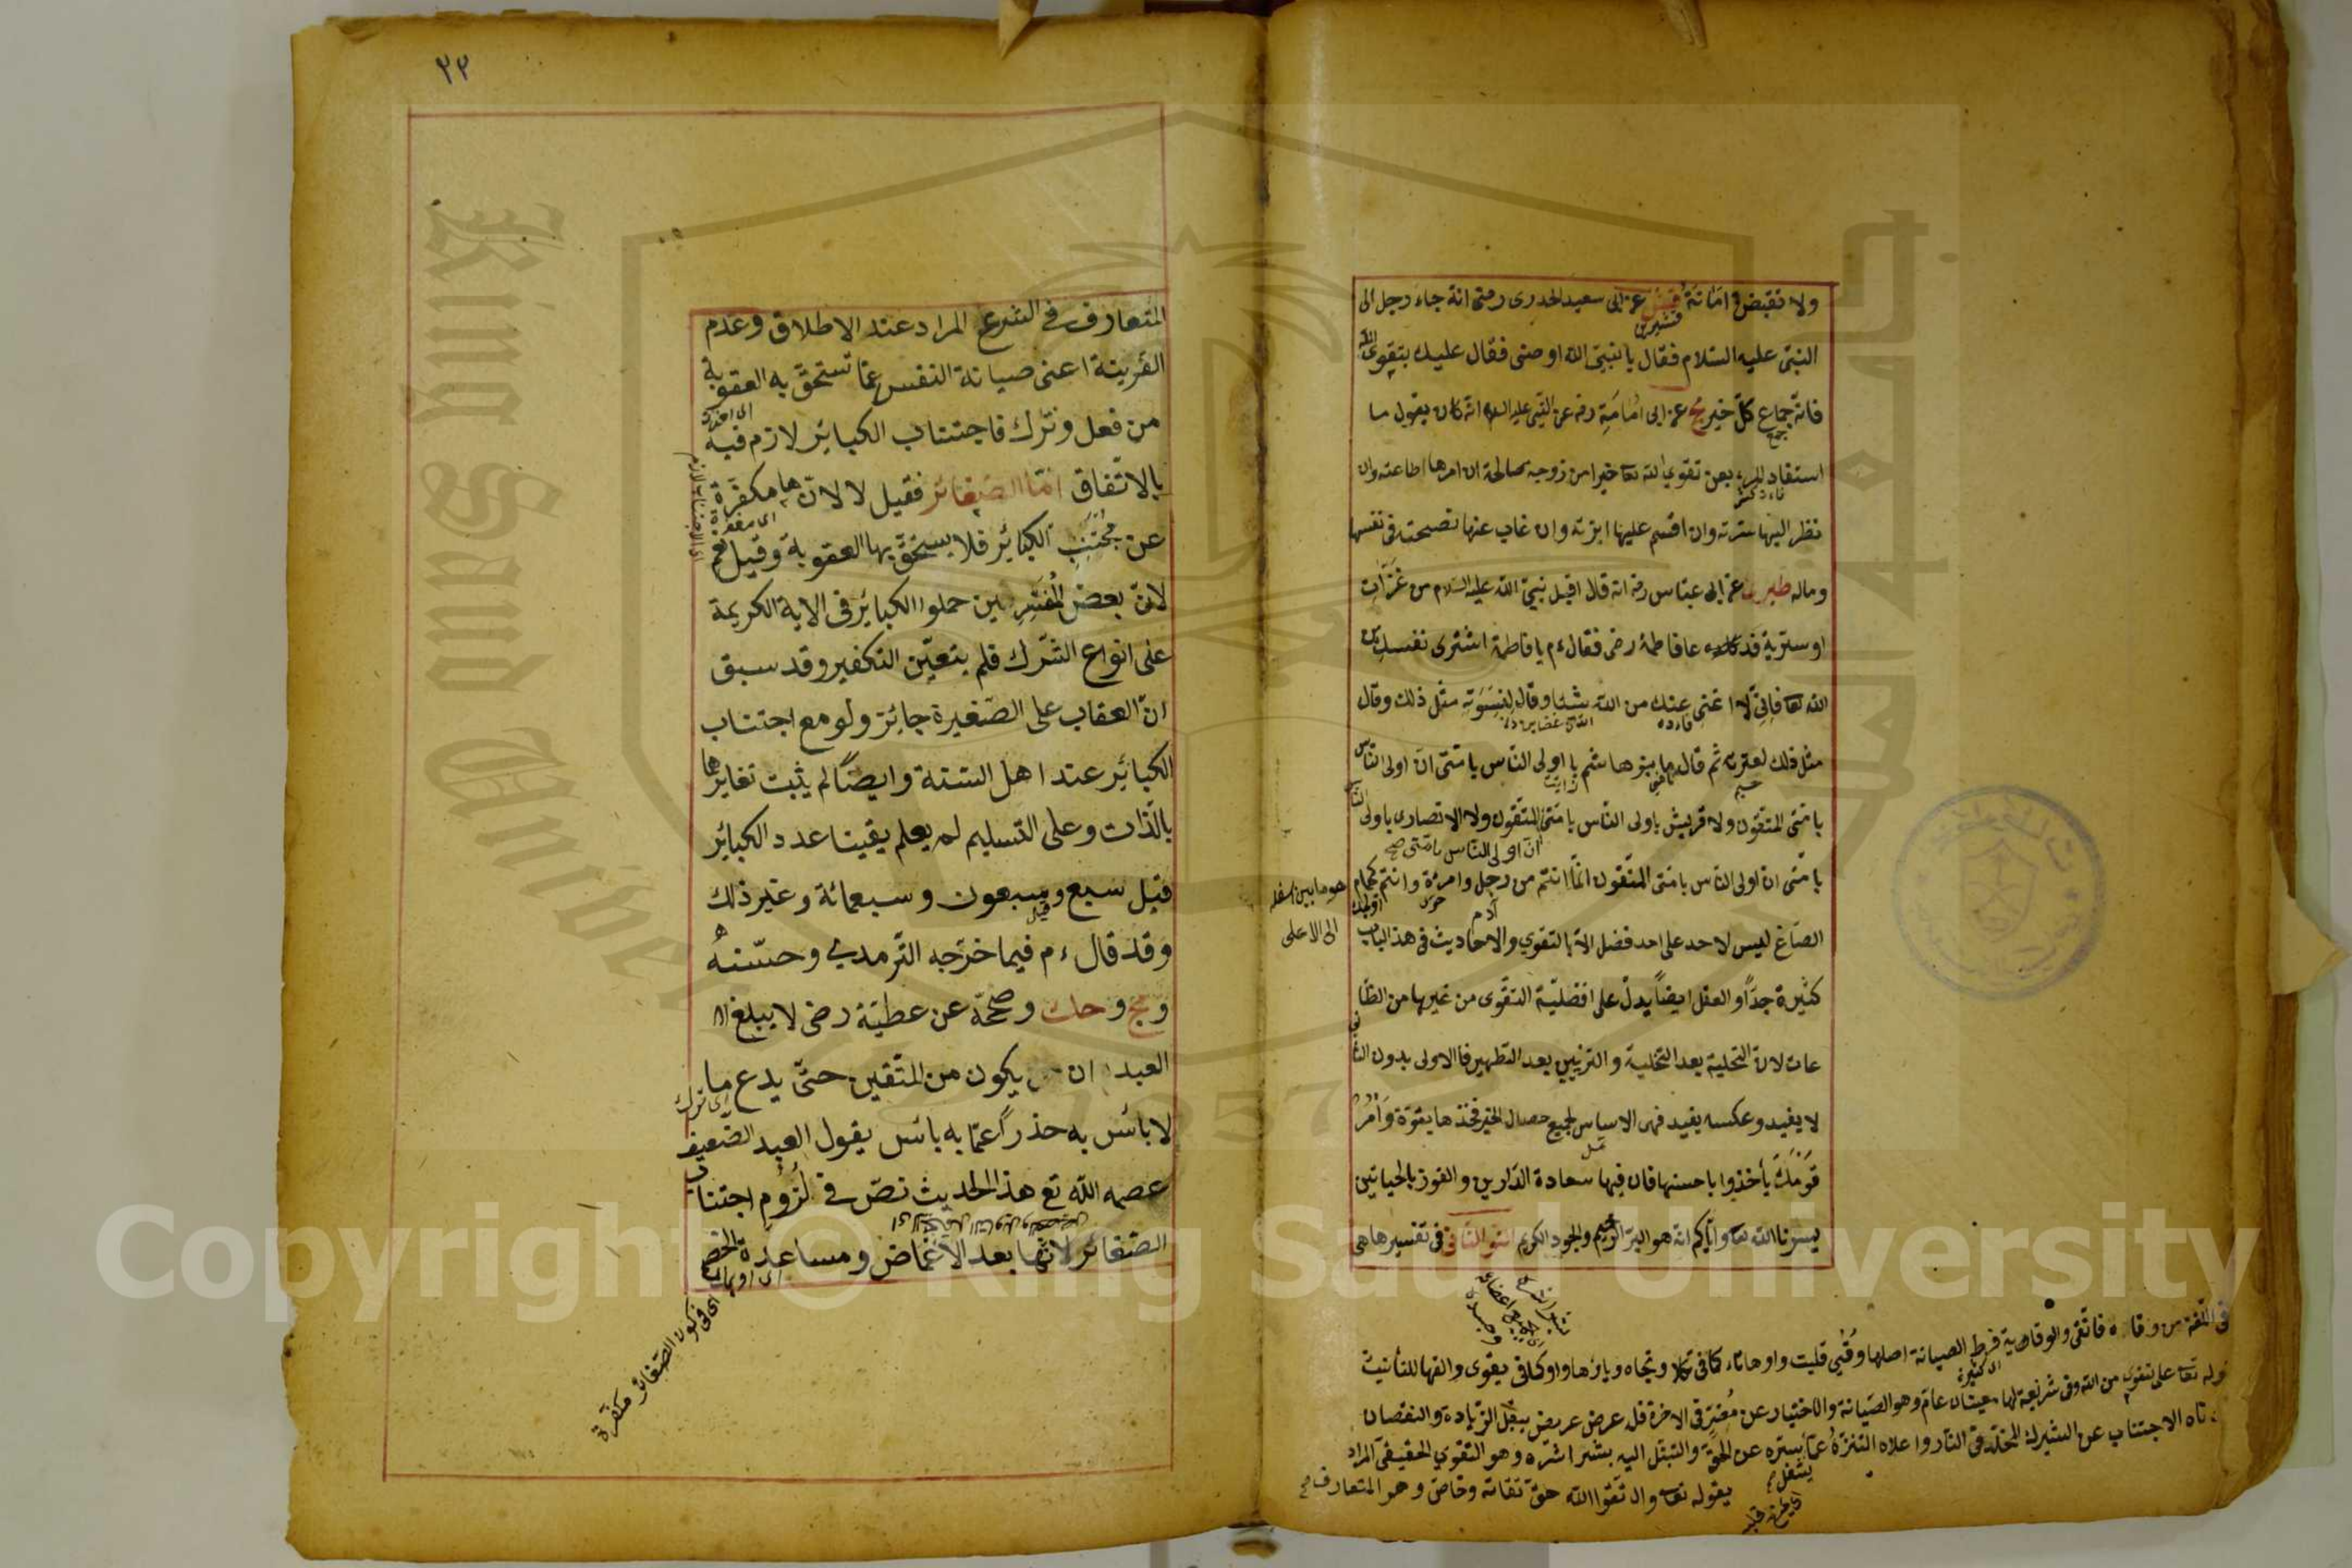 ولا تقبض في امانة قشيرى عن ابى سعيد الخدرى رضى انه جاء رجل الى
النبى عليه السلام فقال يا نبى الله اوصنى فقال عليك بتقوى الله
فانه جماع كل خير مج عن ابى امامة رضه عن النبى عليه السلام انه كان يقول ما
استفاد المرء بعد تقوى الله تعا خيرا من زوجة صالحة ان امرها اطاعته وان
نظر اليها سترته وان اقسم عليها ابرته وان غاب عنها نصحته فى نفسها
وماله طبرى عن ابى عباس رضه انه قال اقبل نبى الله عليه السلام من غزات
او سرية فدعا فاطمة رضى فقال ءم يا فاطمة اشترى نفسك من
الله تعا فانى لا اغنى عنك من الله شيئا وقال لنسوته مثل ذلك وقال
مثل ذلك لعترته ثم قال ما بنو هاشم با ولى الناس بامتى ان اولى الناس
بامتى المتقون ولا قريش باولى الناس بامتى المتقون ولا الانصار باولى الناس
ان اولى الناس بامتى صح
بامتى ان اولى الناس بامتى المتقون انما انتم من رجل وامرءة وانتم كجمام
هو ما بين اسفله
الى الاعلى
الصاع ليس لاحد على احد فضل الا بالتقوى والاحاديث فى هذا الباب
كثيرة جدا والعقل ايضا يدل على افضلية التقوى من غيرها من الطا
عات لان التحلية بعد التخلية والتزيين بعد التطهير فالاولى بدون الثانى
لا يفيد وعكسه يفيد فهى الاساس لجميع خصال الخير فخذها بقوة وأمر
قومك يأخذوا باحسنها فان فيها سعادة الدارين والفوز بالحياتين
يسرنا الله تعا واياكم انه هو البر الرحيم والجود الكريم النوع الثانى فى تفسيرها هى
فى اللغة من وقاه فاتقى والوقاية فرط الصيانة اصلها وقيى قلبت واوها تاء كما فى تكلا وتجاه وياؤها واوا كما فى بقوى والفها للتأنيث
قوله تعا على تقوى من الله وفى شريعة لها معنيان عام وهو الصيانة والاختيار عن مضر فى الاخرة فله عرض عريض يقبل الزيادة والنقصان
ادناه الاجتناب عن الشرك المخلد فى النار واعلاه التنزه عما يشغل سره عن الحق والتبتل اليه بشراشره وهو التقوى الحقيقى المراد
بقوله تعا واتقوا الله حق تقاته وخاص وهو المتعارف صح
٢٢
المتعارف فى الشرع المراد عند الاطلاق وعدم
القرينة اعنى صيانة النفس عما تستحق به العقوبة
من فعل وترك فاجتناب الكبائر لازم فيه
بالاتفاق اما الصغائر فقيل لا لانها مكفرة
عن مجتنب الكبائر فلا يستحق بها العقوبة وقيل نعم
لان بعض المفسرين حملوا الكبائر فى الاية الكريمة
على انواع الشرك فلم يتعين التكفير وقد سبق
ان العقاب على الصغيرة جائز ولو مع اجتناب
الكبائر عند اهل السنة وايضا لم يثبت تغايرها
بالذات وعلى التسليم لم يعلم يقينا عدد الكبائر
فقيل سبع وسبعون وسبعمائة وغير ذلك
وقد قال ءم فيما خرجه الترمدى وحسنه
ومج وحك وصححه عن عطية رضى لا يبلغ
العبد ان يكون من المتقين حتى يدع ما
لا بائس به حذرا عما به بائس يقول العبد الضعيف
عصمه الله تع هذا الحديث نص فى لزوم اجتناب
الصغائر لانها بعد الاغماض ومساعدة الخصم
اى فى كون الصغائر مكفرة
King Saud University
1957
Copyright © King Saud University